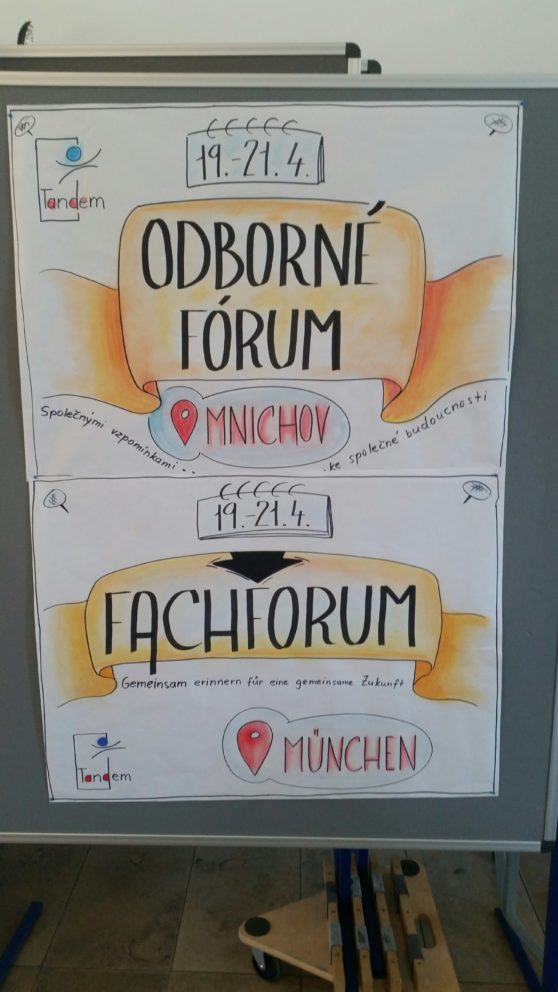 19.-21.4.
Tandem
ODBORNÉ
FÓRUM
MNICHOV
Společnými vzpomínkami...
...ke společné budoucnosti
19.-21.4.
FACHFORUM
Gemeinsam erinnern für eine gemeinsame Zukunft
MÜNCHEN
Tandem